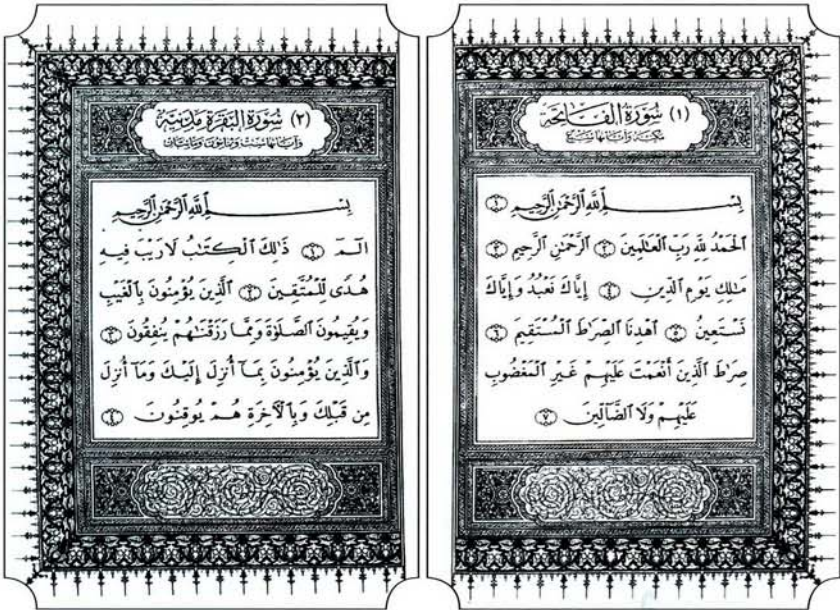 (١) سُورَةُ الْفَاتِحَةِ
مَكِّيَّة وَآيَاتُهَا سَبْعٌ
بِسْمِ اللَّهِ الرَّحْمَٰنِ الرَّحِيمِ ١
الْحَمْدُ لِلَّهِ رَبِّ الْعَالَمِينَ ٢ الرَّحْمَٰنِ الرَّحِيمِ ٣
مَٰلِكِ يَوْمِ الدِّينِ ٤ إِيَّاكَ نَعْبُدُ وَإِيَّاكَ
نَسْتَعِينُ ٥ اهْدِنَا الصِّرَٰطَ الْمُسْتَقِيمَ ٦
صِرَٰطَ الَّذِينَ أَنْعَمْتَ عَلَيْهِمْ غَيْرِ الْمَغْضُوبِ
عَلَيْهِمْ وَلَا الضَّآلِّينَ ٧
(٢) سُورَةُ الْبَقَرَةِ مَدَنِيَّة
وَآيَاتُهَا سِتٌّ وَثَمَانُونَ وَمِائَتَانِ
بِسْمِ اللَّهِ الرَّحْمَٰنِ الرَّحِيمِ
الٓمٓ ١ ذَٰلِكَ الْكِتَٰبُ لَا رَيْبَ فِيهِ
هُدًى لِّلْمُتَّقِينَ ٢ الَّذِينَ يُؤْمِنُونَ بِالْغَيْبِ
وَيُقِيمُونَ الصَّلَوٰةَ وَمِمَّا رَزَقْنَٰهُمْ يُنفِقُونَ ٣
وَالَّذِينَ يُؤْمِنُونَ بِمَآ أُنزِلَ إِلَيْكَ وَمَآ أُنزِلَ
مِن قَبْلِكَ وَبِالْآخِرَةِ هُمْ يُوقِنُونَ ٤